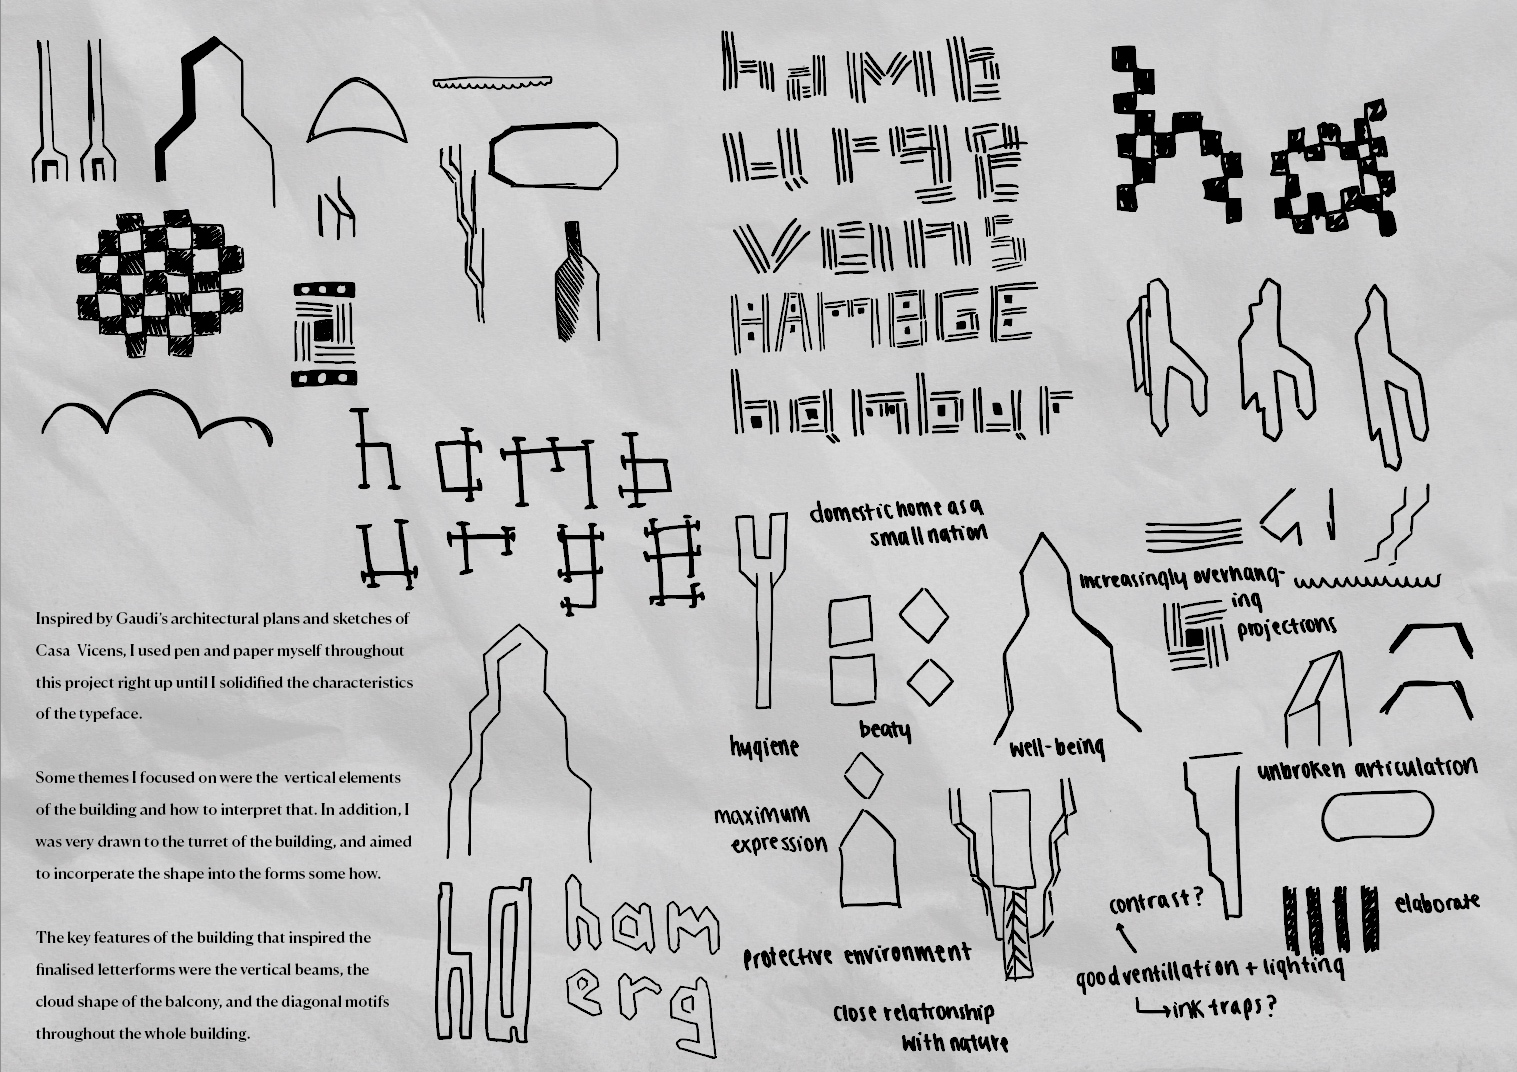 hamb
urge
vens
HAmBGE
hambur
ha
hamb
urge
domestic home as a
small nation
increasingly overhang-
ing
projections
Inspired by Gaudi's architectural plans and sketches of
Casa Vicens, I used pen and paper myself throughout
this project right up until I solidified the characteristics
of the typeface.
Some themes I focused on were the vertical elements
of the building and how to interpret that. In addition, I
was very drawn to the turret of the building, and aimed
to incorperate the shape into the forms some how.
The key features of the building that inspired the
finalised letterforms were the vertical beams, the
cloud shape of the balcony, and the diagonal motifs
throughout the whole building.
hygiene
beaty
well-being
unbroken articulation
maximum
expression
contrast?
elaborate
ha
ham
erg
protective environment
good ventillation + lighting
ink traps?
close relationship
with nature